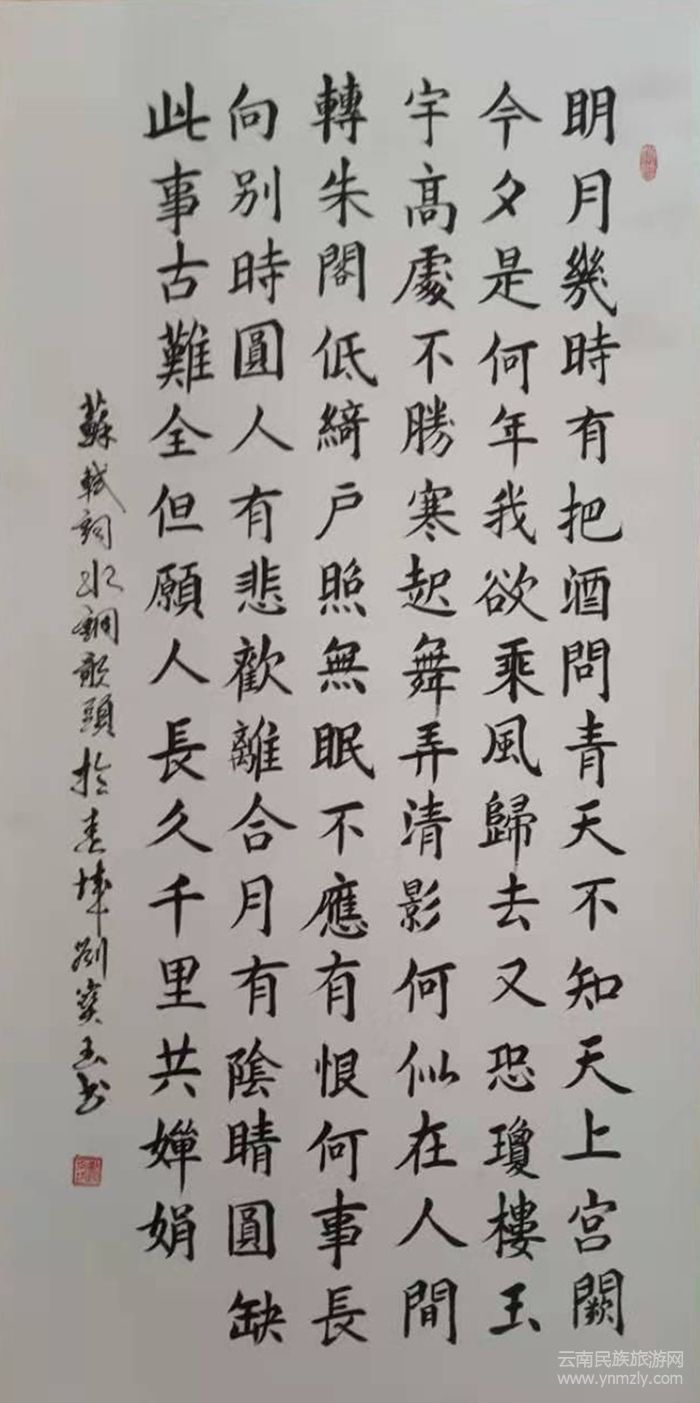 明月幾時有把酒問青天不知天上宮闕
今夕是何年我欲乘風歸去又恐瓊樓玉
宇高處不勝寒起舞弄清影何似在人間
轉朱閣低綺户照無眠不應有恨何事長
向别時圓人有悲歡離合月有陰晴圓缺
此事古難全但願人長久千里共嬋娟
蘇軾詞水調歌頭於春城劉寶玉書
云南民族旅游网
www.ynmzly.com